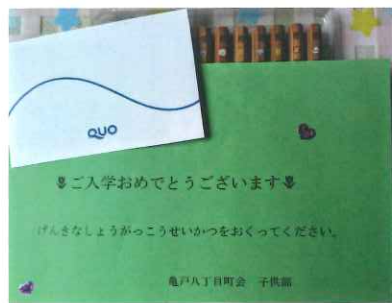 QUO
ご入学おめでとうございます
げんきなしょうがっこうせいかつをおくってください。
亀戸八丁目町会 子供部